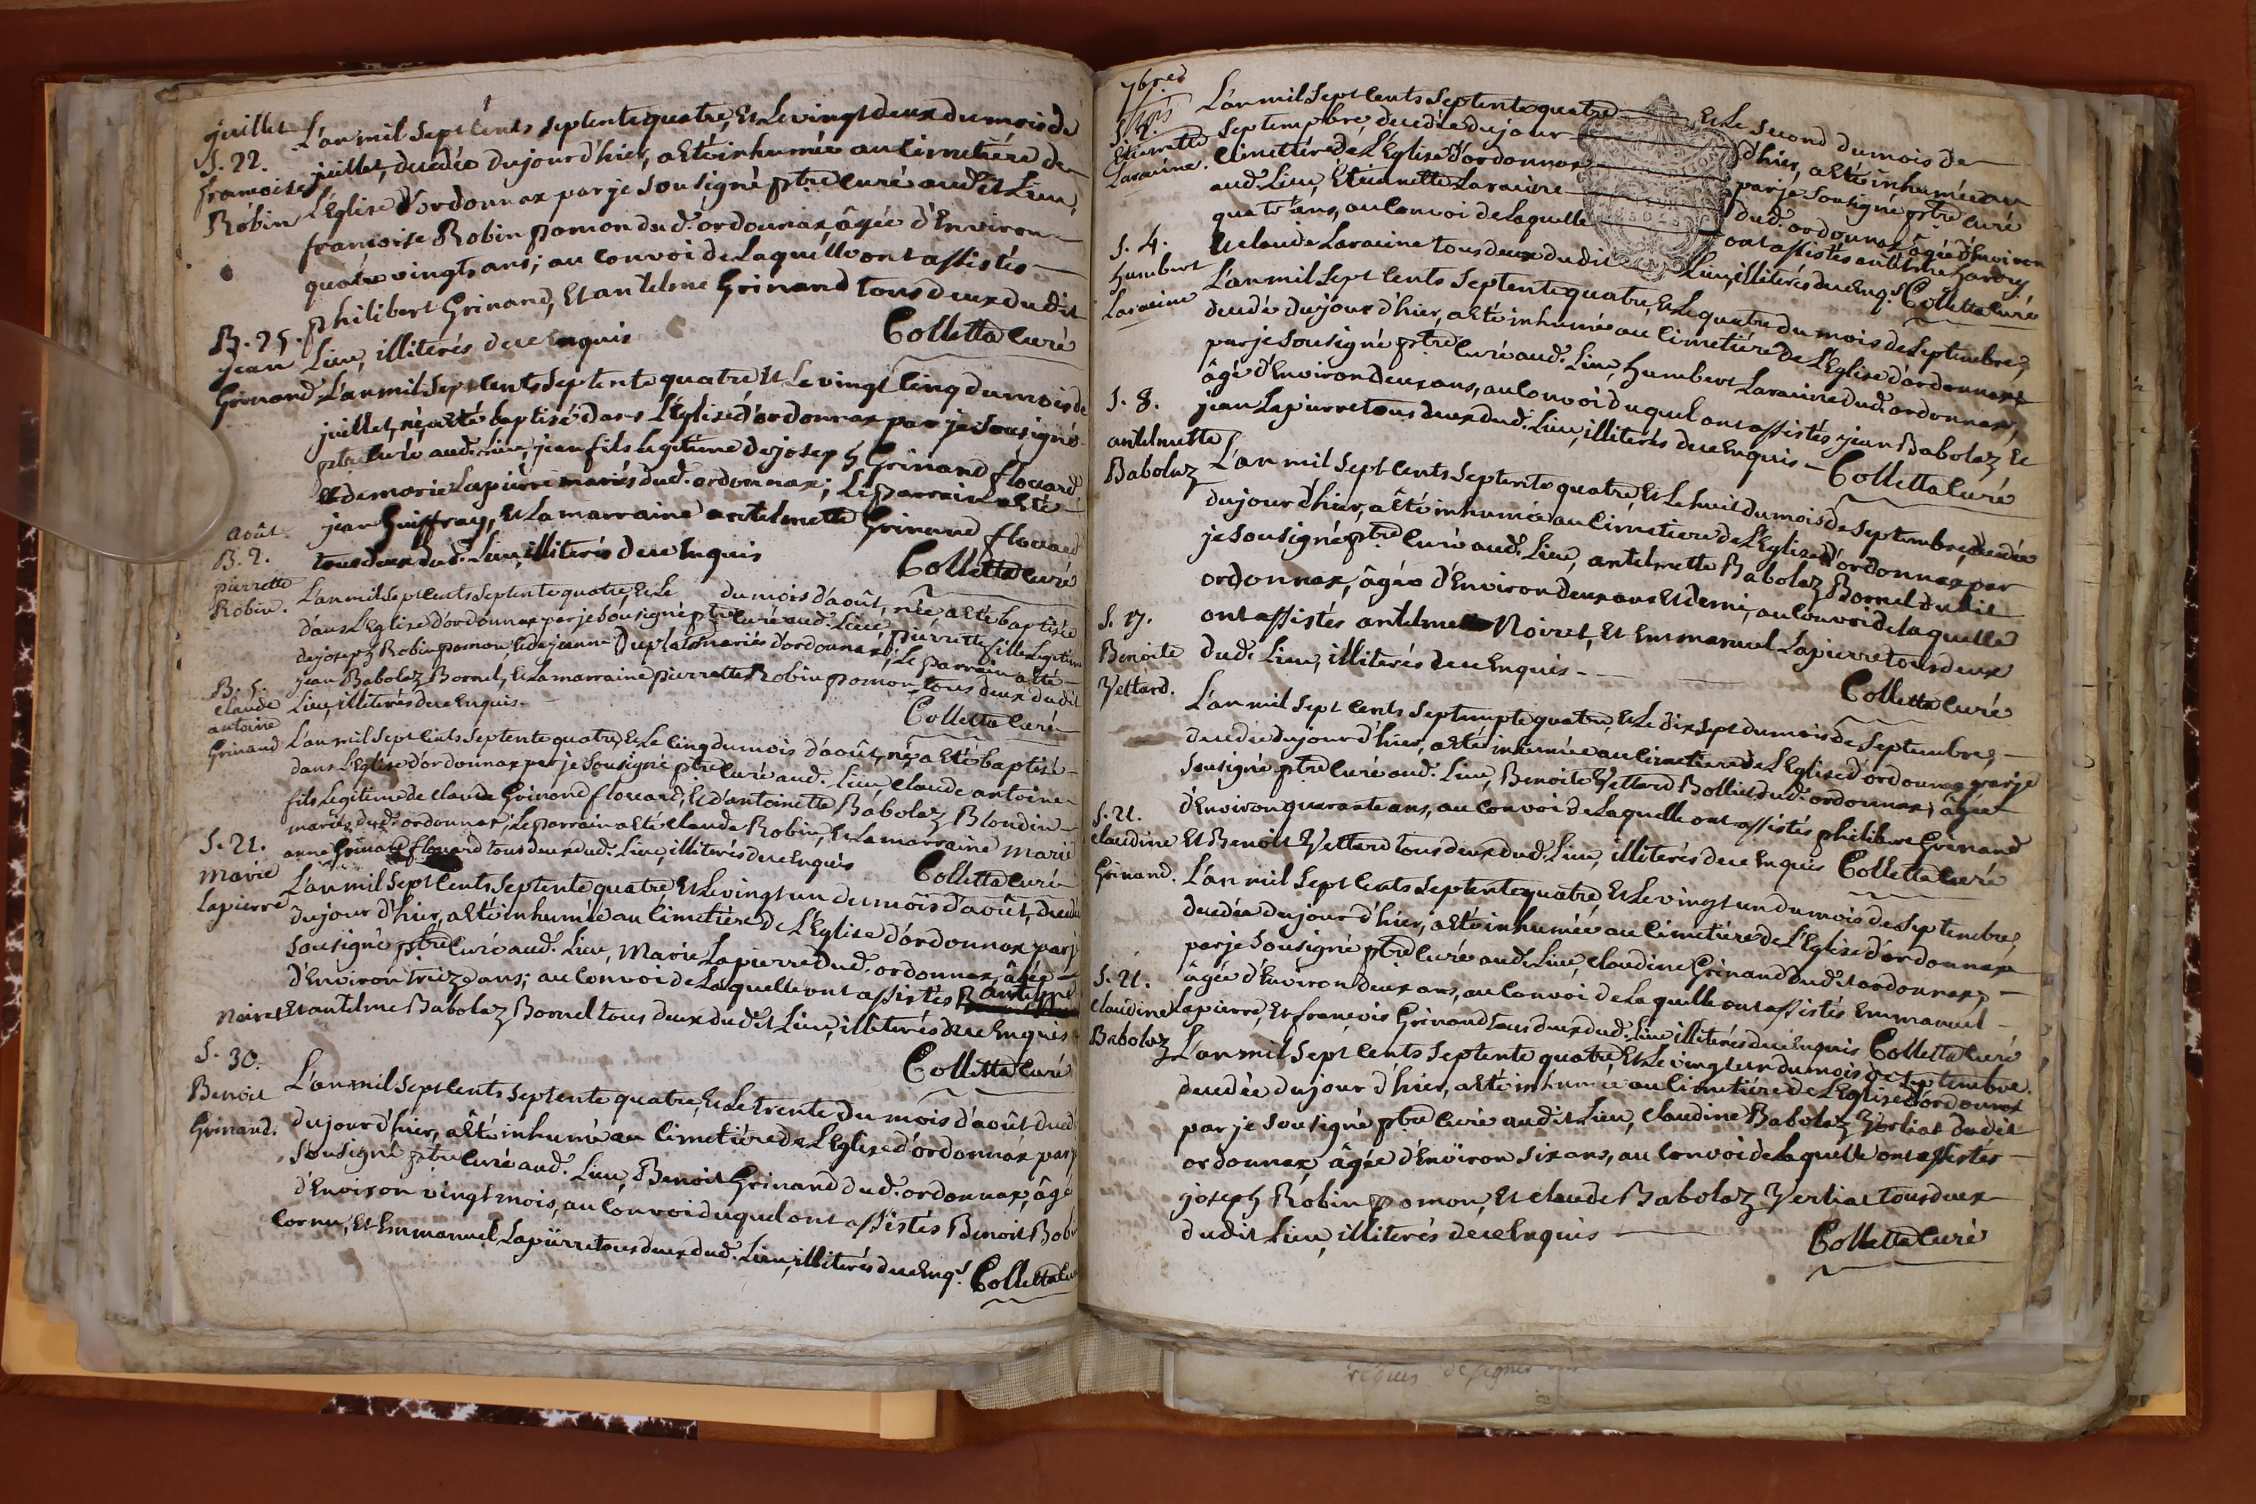 juillet
S. 22.
francoise
Robin
L'an mil sept cents septente quatre, Et Le vingt deux du mois de
juillet, decedée du jour d'hier, a Eté inhumée au Cimetiére de
L'Eglise d'ordonnax par je sousigné ptre Curé audit Lieu,
francoise Robin pomon dud. ordonnax, âgée d'Environ
quatre vingts ans; au Convoi de Laquelle ont assistés
philibert Grinand, Et antelme Grinand tous deux dudit
Lieu, illiterés de ce Enquis
Colletta Curé
B. 25.
jean
Grinand
L'an mil Sept Cents Septente quatre Et Le vingt Cinq du mois de
juillet, né, a Eté baptisé dans L'Eglise d'ordonnax par je sousigné
ptre Curé aud. Lieu, jean fils Legitime de joseph Grinand flocard
Et de marie Lapierre mariés dud. ordonnax; Le parrain a Eté
jean Guiffray, Et La marraine antelmette Grinand flocard
tous deux dud. Lieu, illiterés de ce Enquis
Colletta Curé
Août.
B. 2.
pierrette
Robin.
L'an mil Sept Cents Septente quatre, Et Le du mois d'août, née a Eté baptisée
dans L'Eglise d'ordonnax par je sousigné ptre Curé aud. Lieu, pierrette fille Legitime
de joseph Robin pomon, Et de jeanne mariés d'ordonnax; Le parrain a Eté
jean Babolaz Bornel, Et La marraine pierrette Robin pomon tous deux dudit
Lieu, illiterés de ce Enquis.
Colletta Curé
B. 5.
Claude
antoine
Grinand
L'an mil Sept Cents Septente quatre, Et Le Cinq du mois d'août, né, a Eté baptisé
dans L'Eglise d'ordonnax par je sousigné ptre Curé aud. Lieu, Claude antoine
fils Legitime de Claude Grinand flocard, Et d'antoinette Babolaz Blondin
mariés dud. ordonnax; Le parrain a Eté Claude Robin, Et La marraine marie
anne Grinand flocard tous deux dud. Lieu, illiterés de ce Enquis
Colletta Curé
S. 21.
Marie
Lapierre
L'an mil Sept Cents Septente quatre Et Le vingt un du mois d'août,
du jour d'hier, a Eté inhumée au Cimetiére de L'Eglise d'ordonnax par
sousigné ptre Curé aud. Lieu, Marie Lapierre dud. ordonnax, âgée
d'Environ treiz'ans; au Convoi de Laquelle ont assistés antelme
Noiret Et antelme Babolaz Bornel tous deux dudit Lieu, illiterés de ce Enquis
Colletta Curé
S. 30.
Benoit
Grinand.
L'an mil Sept Cents Septente quatre, Et Le trente du mois d'août
du jour d'hier, a Eté inhumé au Cimetiére de L'Eglise d'ordonnax par
sousigné ptre Curé aud. Lieu, Benoit Grinand dud. ordonnax, âgé
d'Environ vingt mois, au Convoi duquel ont assistés Benoit
Cornu, Et Emmanuel Lapierre tous deux dud. Lieu, illiterés de ce Enqs.
Colletta
7bre
S.
Etiennette
Laracine.
L'an mil Sept Cents Septente quatre Et Le second du mois de
Septembre, decedée du jour d'hier, a Eté inhumée au
Cimetiére de L'Eglise d'ordonnax par je sousigné ptre Curé
aud. Lieu, Etiennette Laracine dud. ordonnax, âgée d'Environ
quatr'ans, au Convoi de Laquelle ont assistés antelme
Et claude Laracine tous deux dudit Lieu, illiterés de ce Enqs. Colletta Curé
S. 4.
humbert
Laracine
L'an mil Sept Cents Septente quatre, Et Le quatre du mois de Septembre,
decedé du jour d'hier, a Eté inhumé au Cimetiére de L'Eglise d'ordonnax
par je sousigné ptre Curé aud. Lieu, humbert Laracine dud. ordonnax,
âgé d'Environ deux ans, au Convoi duquel ont assistés jean Babolaz Et
jean Lapierre tous deux dud. Lieu, illiterés de ce Enquis - Colletta Curé
S. 8.
antelmette
Babolaz
L'an mil Sept Cents Septente quatre Et Le huit du mois de Septembre, decedée
du jour d'hier, a Eté inhumée au Cimetiére de L'Eglise d'ordonnax par
je sousigné ptre Curé aud. Lieu, antelmette Babolaz Bornel dudit
ordonnax, âgée d'Environ deux ans Et demi, au Convoi de Laquelle
ont assistés Noiret, Et Emmanuel Lapierre tous deux
dud. Lieu, illiterés de ce Enquis -
Colletta Curé
S. 17.
Benoite
Vettard.
L'an mil Sept Cents Septempte quatre, Et Le dix sept du mois de Septembre,
decedée du jour d'hier, a Eté inhumée au Cimetiére de L'Eglise d'ordonnax par je
sousigné ptre Curé aud. Lieu, Benoite Vettard Bolliet dud. ordonnax, âgée
d'Environ quarante ans, au Convoi de Laquelle ont assistés philibert Grinand
Et Benoit Vettard tous deux dud. Lieu, illiterés de ce Enquis Colletta Curé
S. 21.
Claudine
Grinand.
L'an mil Sept Cents Septente quatre, Et Le vingt un du mois de Septembre,
decedée du jour d'hier, a Eté inhumée au Cimetiére de L'Eglise d'ordonnax
par je sousigné ptre Curé aud. Lieu, Claudine Grinand dudit ordonnax,
âgée d'Environ deux ans, au Convoi de Laquelle ont assistés Emmanuel
Lapierre, Et francois Grinand tous deux dud. Lieu illiterés de ce Enquis Colletta Curé
S. 21.
Claudine
Babolaz
L'an mil Sept Cents Septente quatre, Et Le vingt un du mois de Septembre
decedée du jour d'hier, a Eté inhumée au Cimetiére de L'Eglise d'ordonnax
par je sousigné ptre Curé audit Lieu, Claudine Babolaz Verliat dudit
ordonnax, âgée d'Environ six ans, au Convoi de Laquelle ont assistés
joseph Robin pomon, Et claude Babolaz Verliat tous deux
dudit Lieu, illiterés de ce Enquis
Colletta Curé